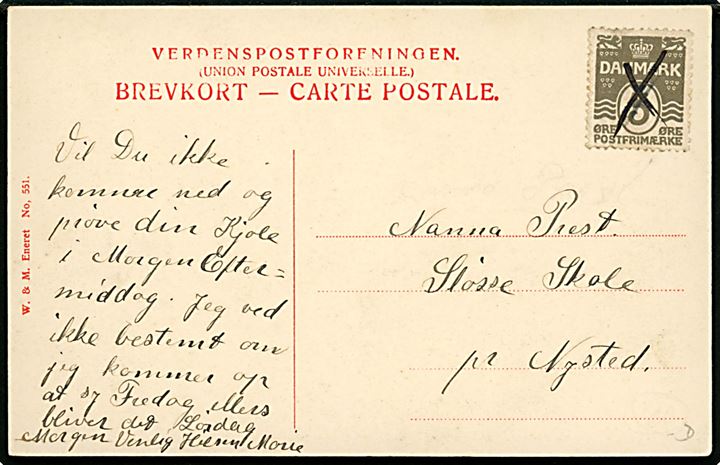 VERDENSPOSTFORENINGEN.
(UNION POSTALE UNIVERSELLE.)
BREVKORT — CARTE POSTALE.
DANMARK
3
ØRE ØRE
POSTFRIMÆRKE
W. & M. Eneret No. 551.
Vil Du ikke
komme ned og
prøve din Kjole
i Morgen Efter=
middag. Jeg ved
ikke bestemt om
jeg kommer op
at sy Fredag ellers
bliver det Lørdag
Morgen Venlig Hilsen Marie
Nanna Prest.
Sløsse Skole
pr Nysted.
D